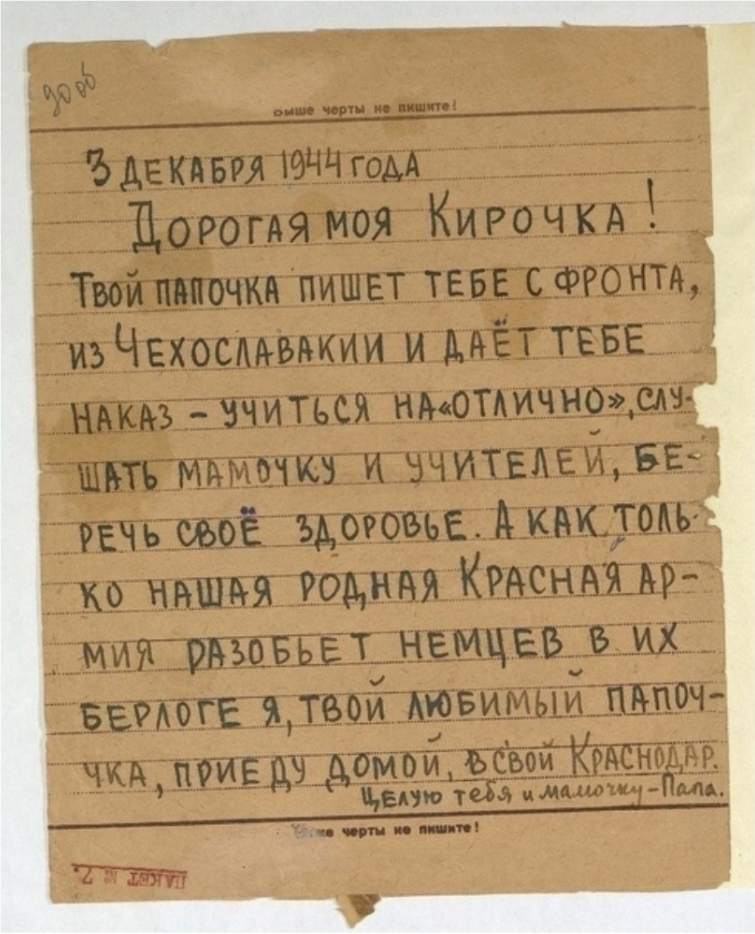 выше черты не пишите!
3 ДЕКАБРЯ 1944 ГОДА
ДОРОГАЯ МОЯ КИРОЧКА!
ТВОЙ ПАПОЧКА ПИШЕТ ТЕБЕ С ФРОНТА,
ИЗ ЧЕХОСЛАВАКИИ И ДАЁТ ТЕБЕ
НАКАЗ – УЧИТЬСЯ НА «ОТЛИЧНО», СЛУ-
ШАТЬ МАМОЧКУ И УЧИТЕЛЕЙ, БЕ-
РЕЧЬ СВОЁ ЗДОРОВЬЕ. А КАК ТОЛЬ-
КО НАШАЯ РОДНАЯ КРАСНАЯ АР-
МИЯ РАЗОБЬЕТ НЕМЦЕВ В ИХ
БЕРЛОГЕ Я, ТВОЙ ЛЮБИМЫЙ ПАПОЧ-
ЧКА, ПРИЕДУ ДОМОЙ, В СВОЙ КРАСНОДАР.
ЦЕЛУЮ тебя и мамочку – Папа.
черты не пишите!
ПАКЕТ № 7.